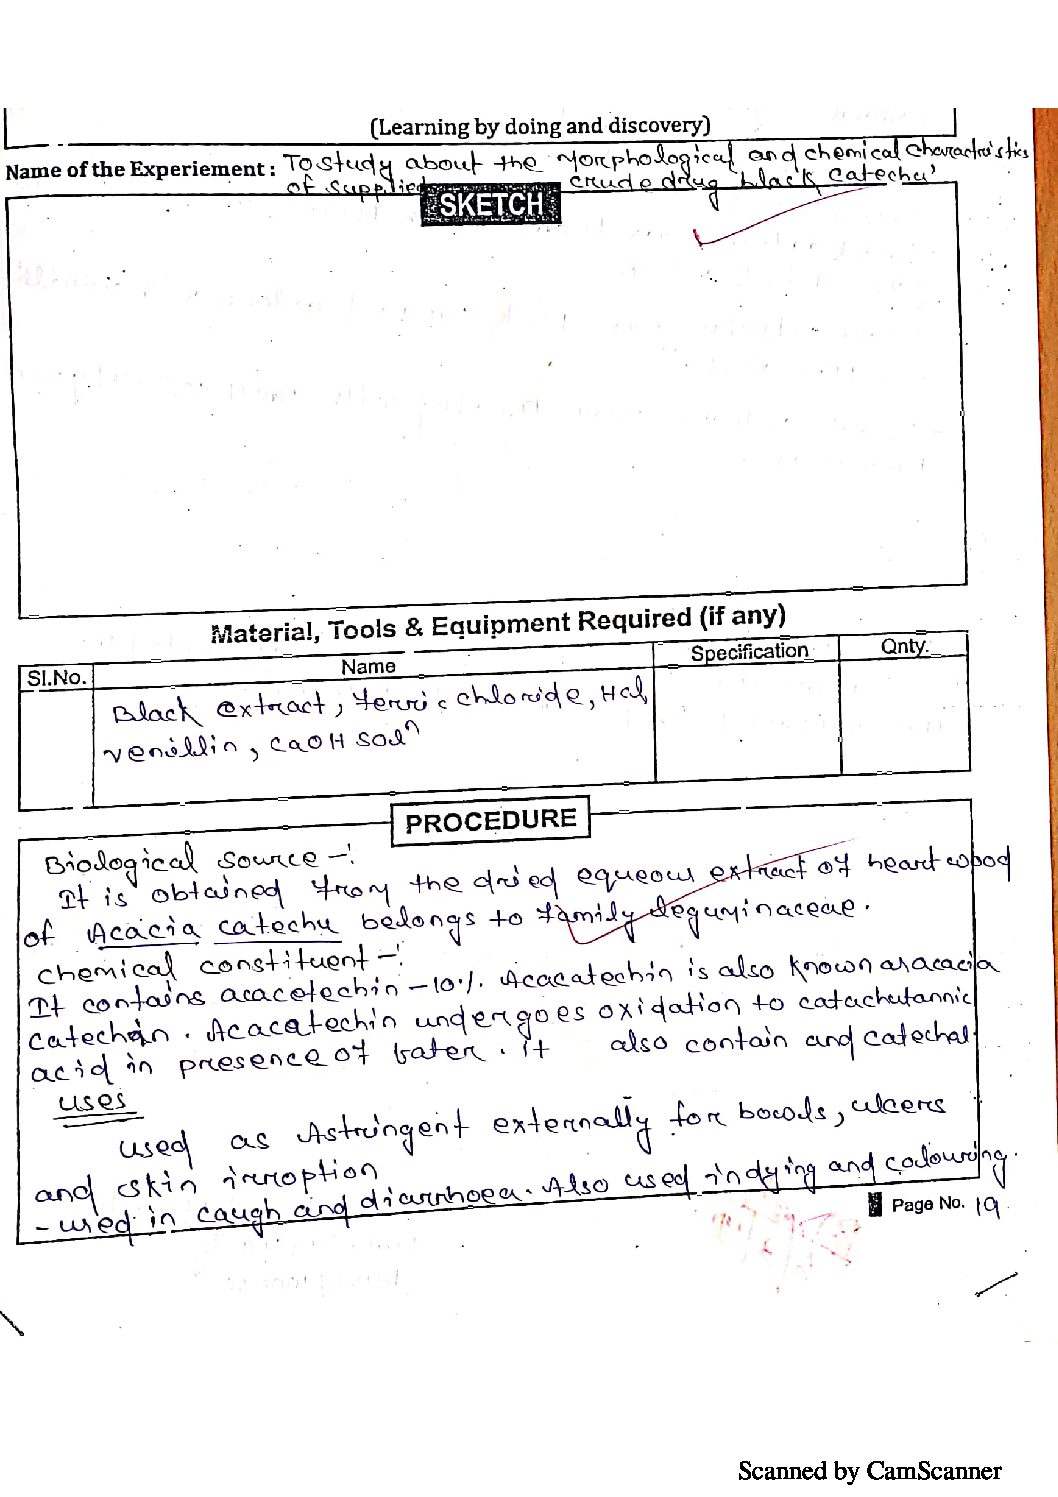 (Learning by doing and discovery)
Name of the Experiement : To study about the Morphological and chemical characteristics
of supplied crude drug 'black catechu'
SKETCH
Material, Tools & Equipment Required (if any)
Sl.No. Name Specification Qnty.
Black extract, Ferric chloride, Hcl,
venillin, CaOH solⁿ
PROCEDURE
Biological source -:
It is obtained from the dried equeous extract of heart wood
of Acacia catechu belongs to family leguminaceae.
chemical constituent -:
It contains acacotechin - 10%. Acacatechin is also known as acacia
catechin. Acacatechin undergoes oxidation to catachutannic
acid in presence of water. it also contain and catechol
uses
used as Astringent externally for bowls, ulcers
and skin irroption
- used in caugh and diarrhoea. Also used in dying and colouring.
Page No. 19
Scanned by CamScanner